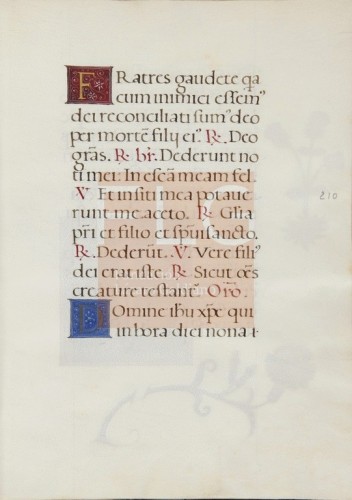 Fratres gaudete q̃a
cum inimici essem⁹
dei reconciliati sum⁹ deo
per mortẽ filij ei⁹. ℟. Deo
grãs. ℟. br̃. Dederunt no
ti mei: In escam eam fel.
℣ Et in siti mea potaue
runt me aceto. ℟ Glĩa
pr̃i et filio et spũi sancto.
℟. Dederũt. ℣. Vere fili⁹
dei erat iste. ℟ Sicut oẽs
creature testant̃. Orõ.
Domine ihũ xp̃e qui
in hora diei nona i-
210
FLG